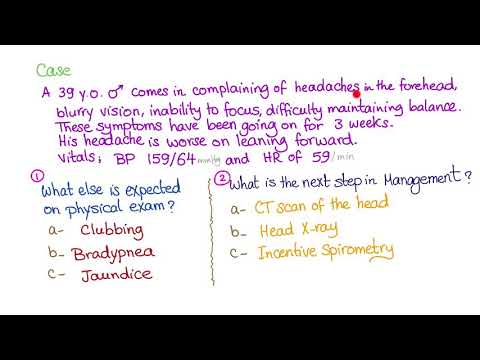 Case
A 39 y.o. ♂ comes in complaining of headaches in the forehead,
blurry vision, inability to focus, difficulty maintaining balance.
These symptoms have been going on for 3 weeks.
His headache is worse on leaning forward.
Vitals; BP 159/64 mmHg and HR of 59/min
①
What else is expected
on physical exam?
a- Clubbing
b- Bradypnea
c- Jaundice
②
What is the next step in Management?
a- CT scan of the head
b- Head X-ray
c- Incentive Spirometry